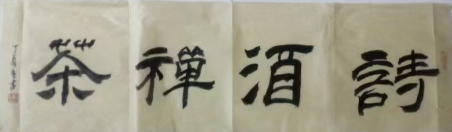 詩酒禪茶